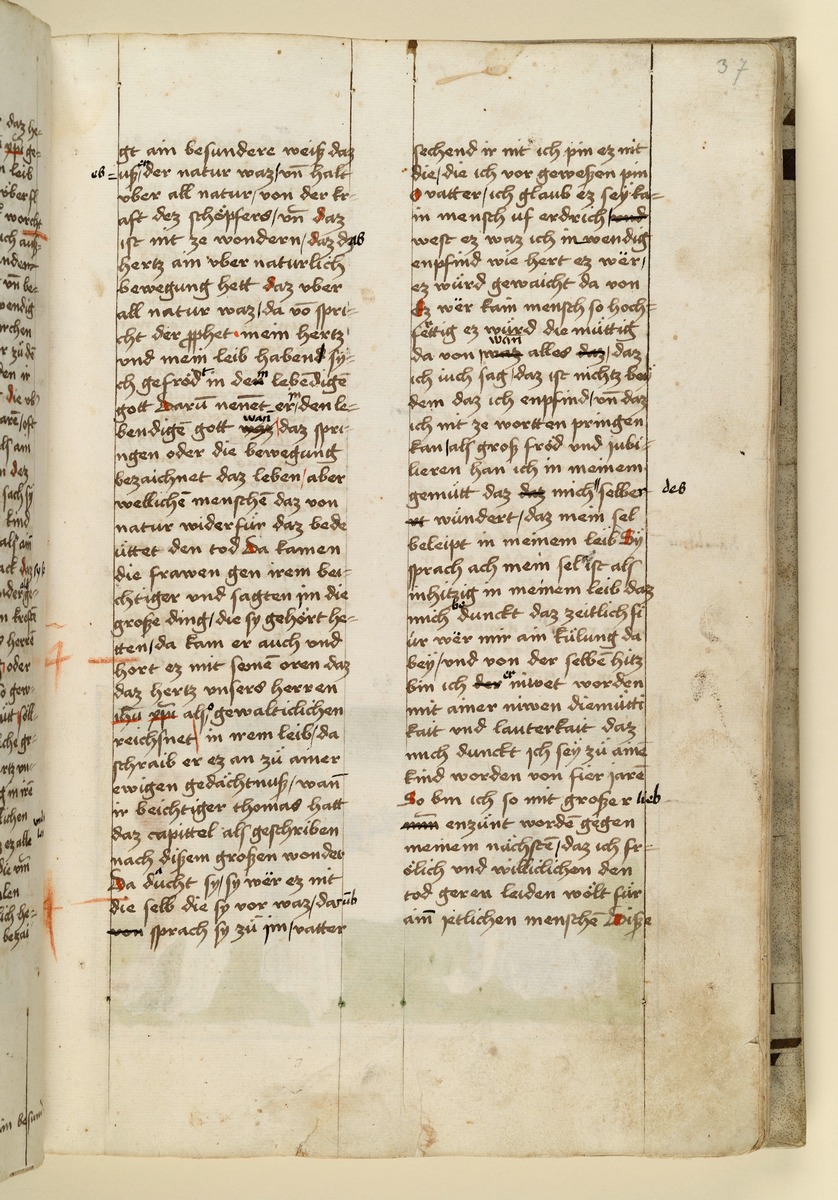 37
gt ain besundere weiß daz
es uß der natur waz / vn̄ halt
vber all natur / von der kr-
aft dez schöpfers / vn̄ daz
ist nit ze wondern / daz das
hertz ain vber naturlich
bewegung hett daz vber
all natur waz / da vō spri-
cht der ꝓphet · mein hertz
vnd mein leib habend sy-
ch gefröd in dem lebēdigē
gott Darū nēnet er / den le-
bendigē gott wan / daz spri-
ngen oder die bewegung
bezaichnet daz leben / aber
wellichē menschē daz von
natur widerfür daz bede
üttet den tod Da kamen
die frawen gen irem bei-
chtiger vnd sagten im die
große ding / die sy gehört he-
tten / da kam er auch vnd
hort ez mit seinē oren daz
daz hertz vnsers herren
ihū xp̄i also gewalticlichen
reichsnet / in irem leib / da
schraib er ez an zü ainer
ewigen gedächtnuß / wann̄
ir beichtiger thomas hatt
daz capittel also geschriben
nach dißem großen wonder
Da dücht sy / sy wër ez nit
die selb die sy vor waz / darūb
von sprach sy zü im / vatter
sechend ir nit ich pin ez nit
die / die ich vor geweßen pin
O vatter / ich glaub ez sey ka-
in mensch uf erdrich / vnd
west ez waz ich inwendig
enpfind wie hert ez wër /
ez würd gewaicht da von
Ez wër kain mensch so hoch-
fërttig ez würd diemüttig
da von wan alles daz / daz
ich iuch sag / daz ist nichtz bey
dem daz ich enpfind / vn̄ daz
ich nit ze wortten pringen
kan / als groß fröd vnd iubi-
lieren han ich in meinem
gemütt daz daz mich selber des
wündert / daz mein sel
beleipt in meinem leib Sy
sprach ach mein sel ist als
inhitzig in meinem leib daz
mich bedunckt daz zeitlich fi
ür wër mir ain külung da
bey / vnd von der selbē hitz
bin ich der er niwet worden
mit ainer niwen diemütti
kait vnd lauterkait daz
mich dunckt ich sey zü ainē
kind worden von fier jarē
So bin ich so mit großer lieb
enzünt wordē gegen
meinem nächstē / daz ich fr-
ölich vnd williclichen den
tod geren leiden wölt für
ain̄ ietlichen menschē Diße